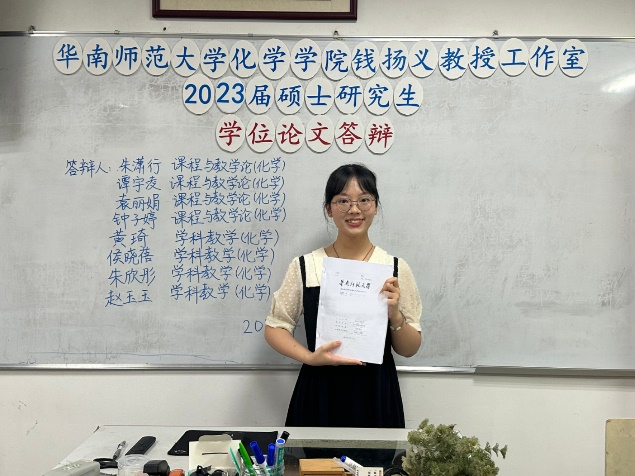 华南师范大学化学学院钱扬义教授工作室
2023届硕士研究生
学位论文答辩
答辩人：朱潇行 课程与教学论(化学)
谭宇凌 课程与教学论(化学)
袁丽娟 课程与教学论(化学)
钟子婷 课程与教学论(化学)
黄琦 学科教学(化学)
侯晓蓓 学科教学(化学)
朱欣彤 学科教学(化学)
赵玉玉 学科教学(化学)
20
华南师范大学